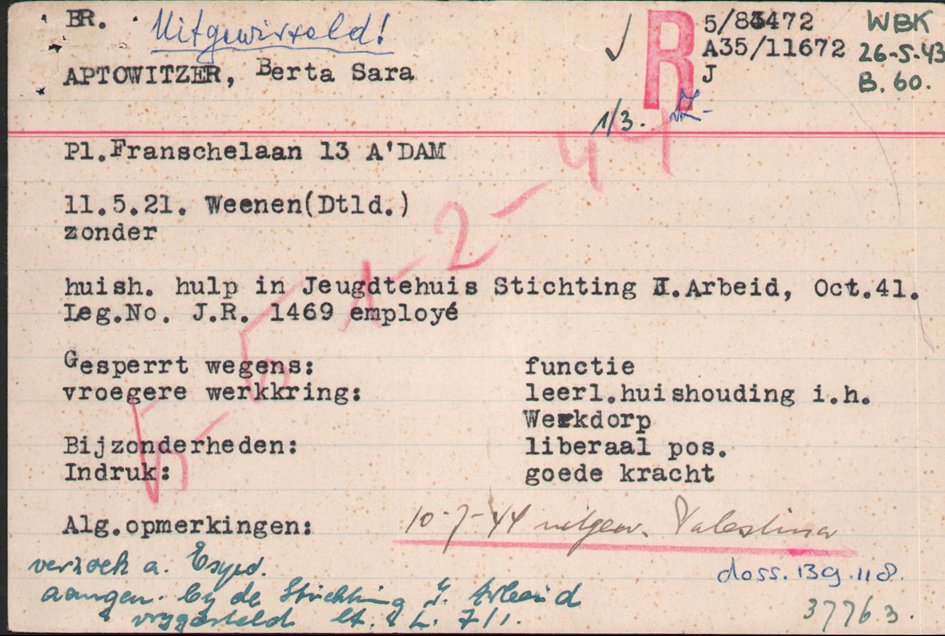 BR. Uitgewisseld!
R 5/83472 WBK
A35/11672 26-5-43
APTOWITZER, Berta Sara J B. 60.
1/3.
Pl.Franschelaan 13 A'DAM
11.5.21. Weenen(Dtld.)
zonder
huish. hulp in Jeugdtehuis Stichting J.Arbeid, Oct.41.
Leg.No. J.R. 1469 employé
1-2-44
Gesperrt wegens: functie
vroegere werkkring: leerl.huishouding i.h.
Werkdorp
Bijzonderheden: liberaal pos.
Indruk: goede kracht
Alg.opmerkingen: 10-7-44 uitgew. Palestina
verzoek a. Expos.
aangen. bij de Stichting J. Arbeid
doss. 139.118.
vrijgesteld 7/1.
37763.